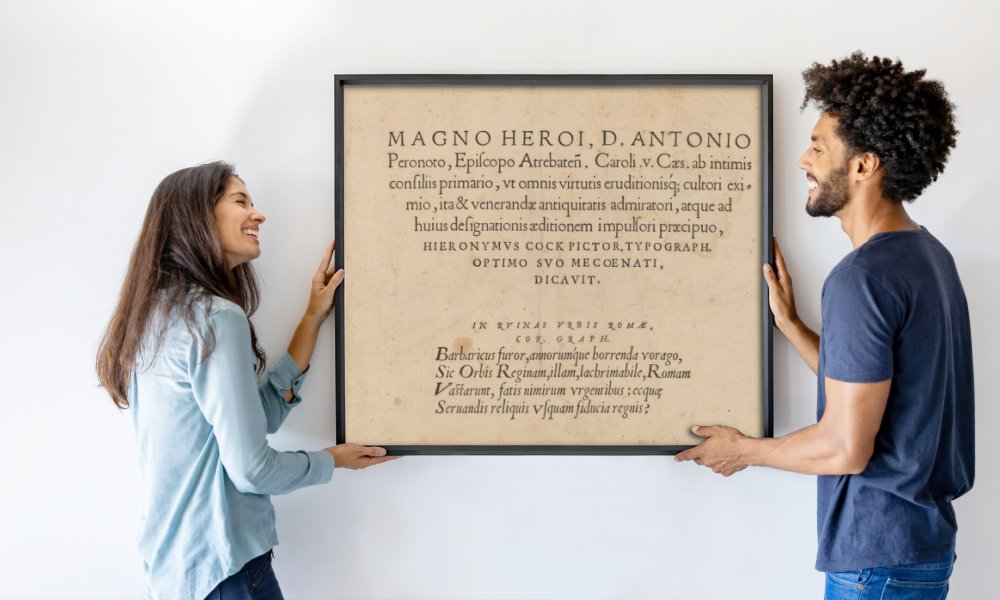 MAGNO HEROI, D. ANTONIO
Peronoto, Epiſcopo Atrebateñ. Caroli .v. Cæs. ab intimis
conſiliis primario, vt omnis virtutis eruditionisq; cultori exi-
mio, ita & venerandæ antiquitatis admiratori, atque ad
huius deſignationis æditionem impulſori præcipuo,
HIERONYMVS COCK PICTOR, TYPOGRAPH.
OPTIMO SVO MECOENATI,
DICAVIT.
IN RVINAS VRBIS ROMÆ,
COR. GRAPH.
Barbaricus furor, annorumque horrenda vorago,
Sic Orbis Reginam, illam, lachrimabile, Romam
Vaſtarunt, fatis nimirum vrgentibus: ecquæ
Seruandis reliquis vſquam fiducia regnis?